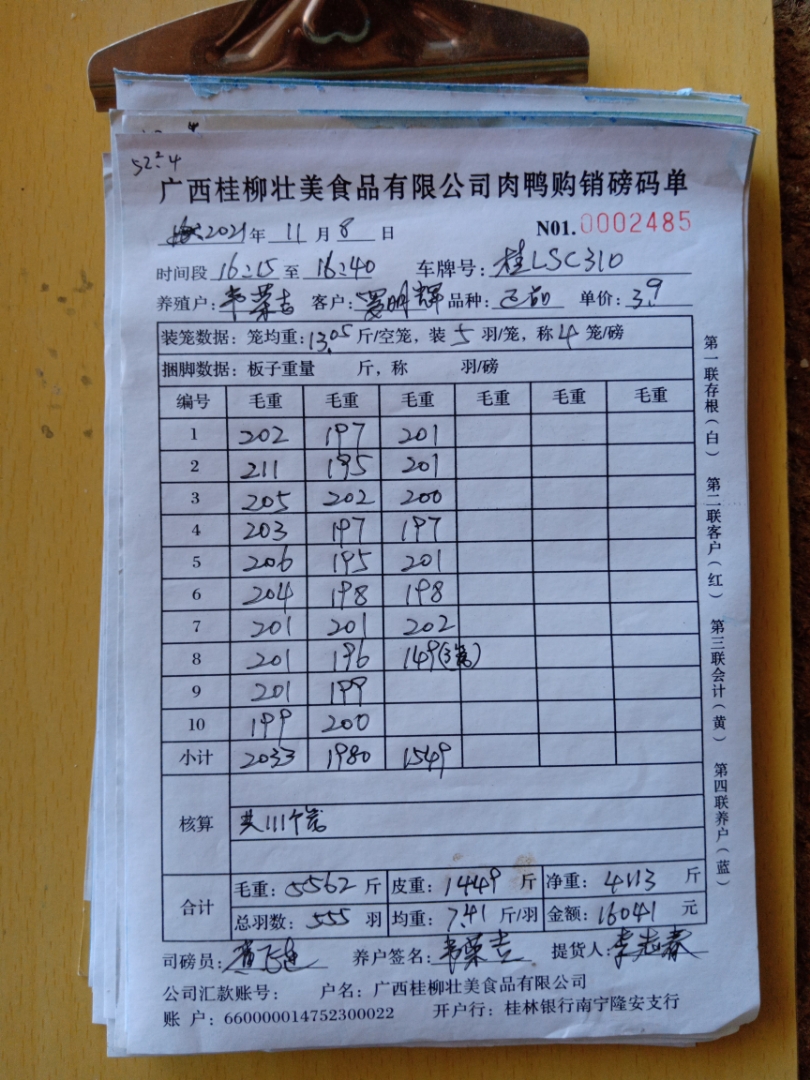 52.4
广西桂柳壮美食品有限公司肉鸭购销磅码单
2021年 11月 8日 N01.0002485
时间段 16:15 至 16:40 车牌号: 桂LSC310
养殖户: 韦荣吉 客户: 罗明辉 品种: 单价: 3.9
装笼数据: 笼均重: 13.05 斤/空笼, 装 5 羽/笼, 称 4 笼/磅
捆脚数据: 板子重量 斤, 称 羽/磅
编号 毛重 毛重 毛重 毛重 毛重 毛重
1 202 197 201
2 211 195 201
3 205 202 200
4 203 197 197
5 206 195 201
6 204 198 198
7 201 201 202
8 201 196 149(3笼)
9 201 199
10 199 200
小计 2033 1980 1549
核算 共111个笼
合计
毛重: 5562 斤 皮重: 1449 斤 净重: 4113 斤
总羽数: 555 羽 均重: 7.41 斤/羽 金额: 16041 元
司磅员: 养户签名: 韦荣吉 提货人: 李志春
公司汇款账号: 户名: 广西桂柳壮美食品有限公司
账 户: 660000014752300022 开户行: 桂林银行南宁隆安支行
第一联存根(白) 第二联客户(红) 第三联会计(黄) 第四联养户(蓝)